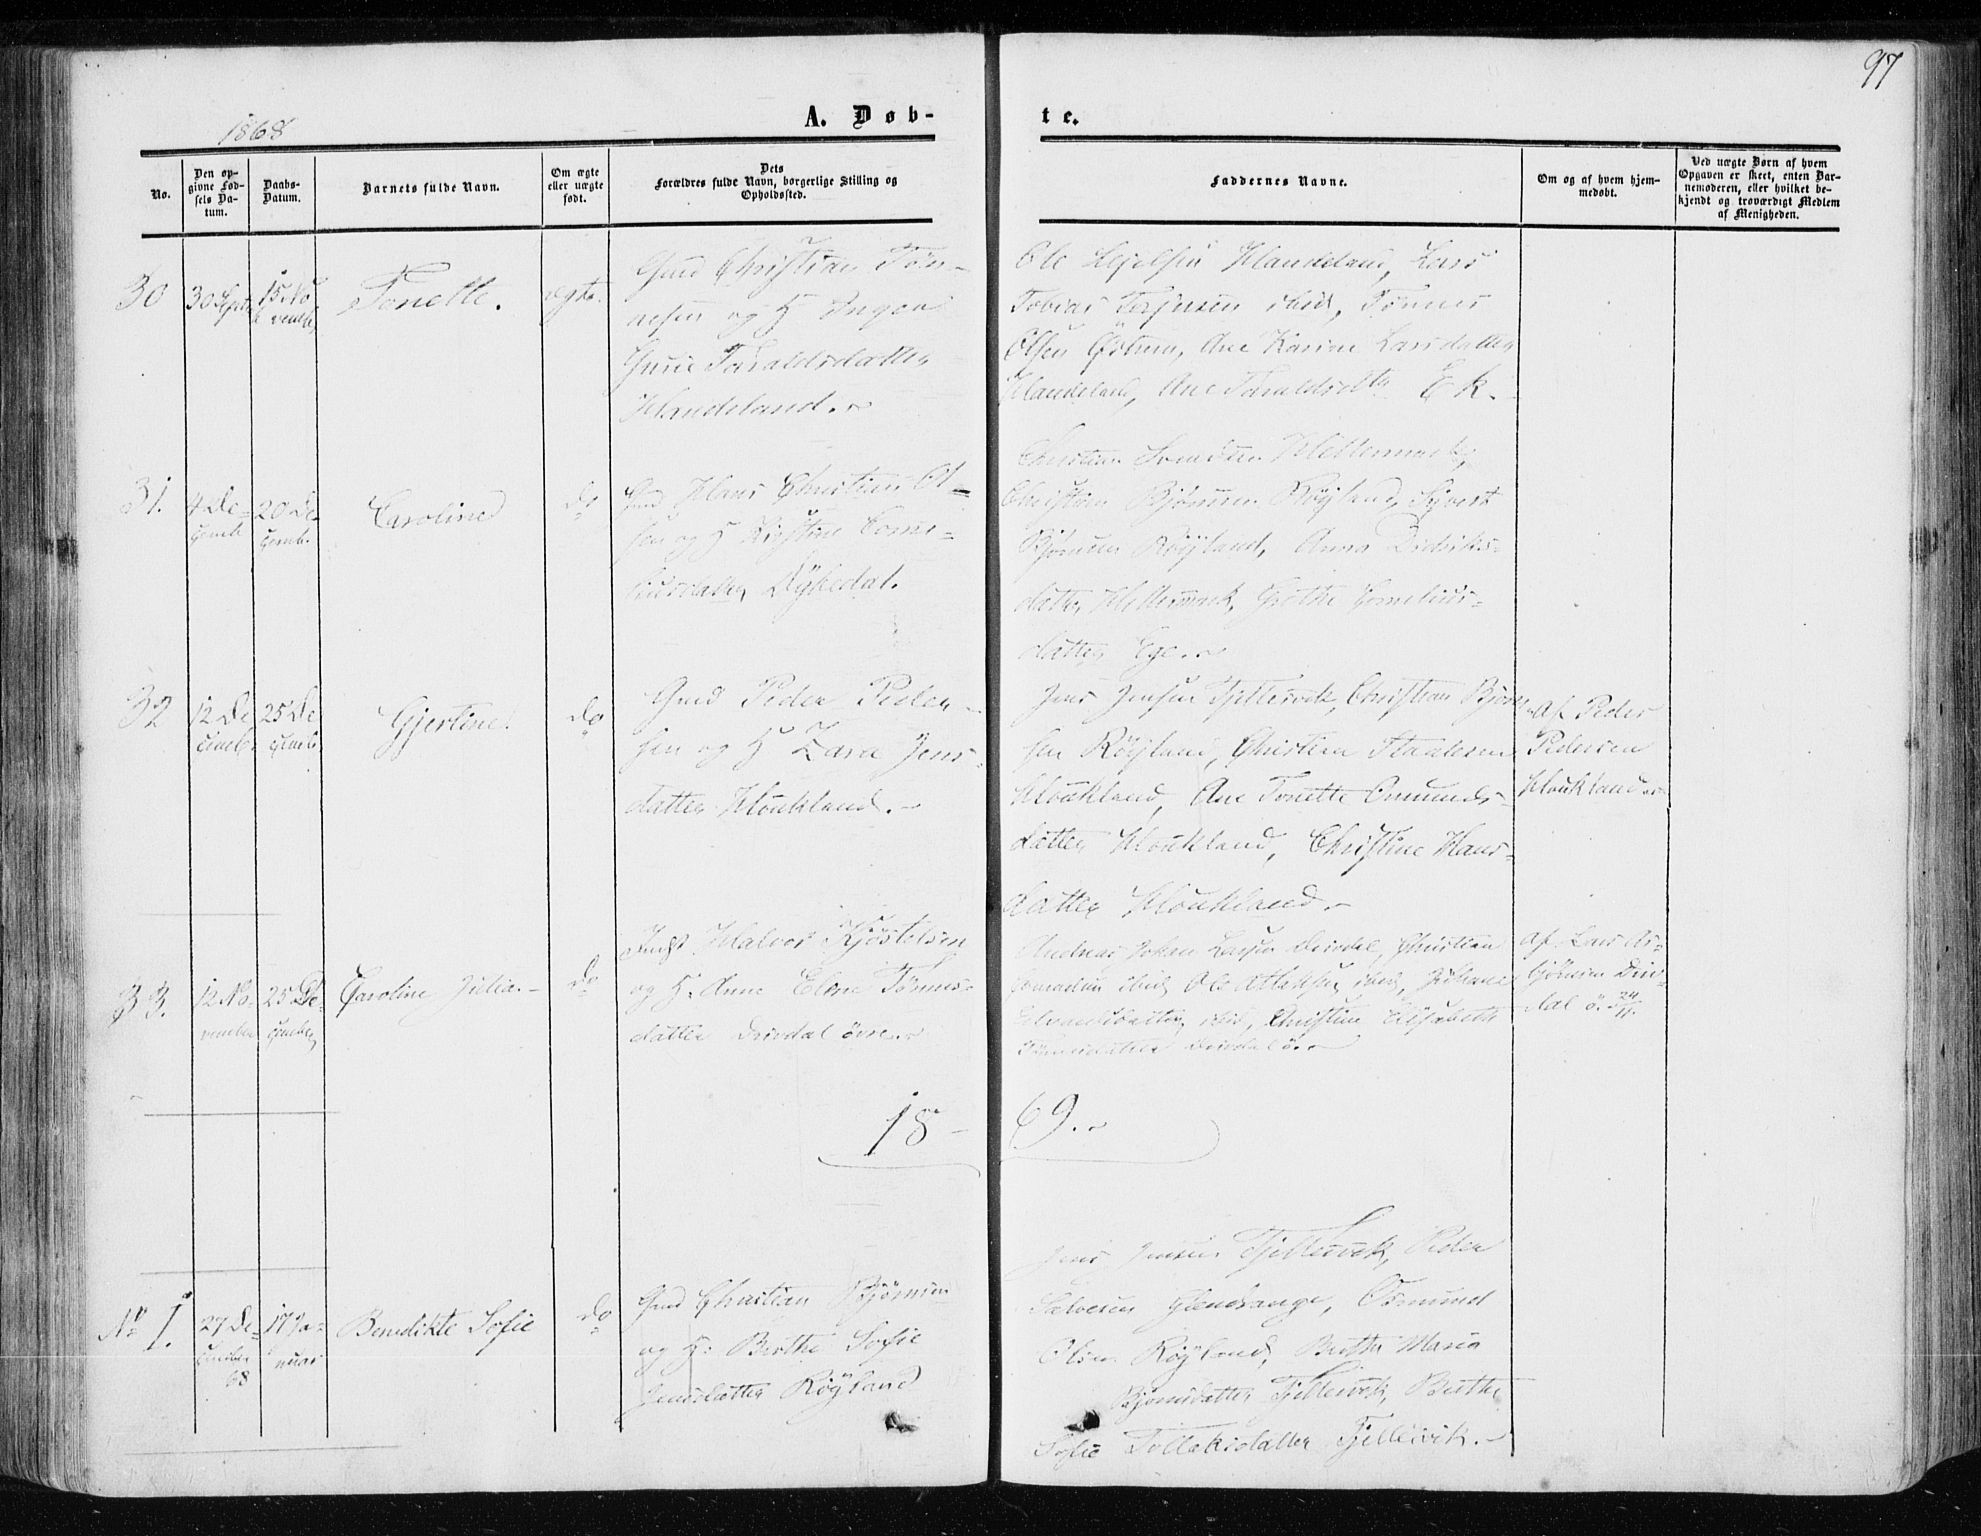 97
1868
A. Døb-
te.
No.
Den op-
givne Fød-
sels Da-
tum.
Daabs-
Datum.
Barnets fulde Navn.
Om ægte
eller uægte
født.
Dets
Forældres fulde Navn, borgerlige Stilling og
Opholdssted.
Faddernes Navne.
Om og af hvem hjem-
medøbt.
Ved uægte Børn af hvem
Opgaven er skeet, enten Bar-
nemoderen, eller hvilket be-
kjendt og troværdigt Medlem
af Menigheden.
30
30 Septb
15 No
vemb.
Tonette.
ægte.
Gmd Christian Tøn-
nesen og H Ingeri
Gurie Taraldsdatter
Haudeland.
Ole Haudeland, Lars
Tobias Terjesen ibid, Tønnes
Olsen, Ane Karine Larsdatter
Haudeland, Ane Taraldsdtr Ek.
31.
4 De-
cemb
20 De-
cemb.
Caroline
do
Gmd Hans Christian Ol-
sen og H Kirstine Corne-
liusdatter Dybedal.
Christian Svendsen
Christian Bjørnsen Röyland, Syvert
Bjørnsen Röyland, Anna Didriks-
datter, Grethe Cornelius-
datter Ege.
32
12 De
cemb.
25 De
cemb.
Gjertine.
do
Gmd Peder Peder-
sen og H Zara Jens-
datter Houkland.
Jens Jensen Fjellesvik, Christian Bjørn-
sen Röyland, Christian
Houkland, Ane Tonette Omunds-
datter Houkland, Christine Hans-
datter Houkland.
Af Peder
Pedersen
Houkland.
33.
12 No-
vember
25 De-
cember
Caroline Julia.
do
Halvor Kjöstelsen
og H. Anne Elene Tønnes-
datter Drivdal övre.
Andreas Johan Larsen Drivdal, Christian
ibid, Ole ibid,
ibid, Christine Elisabeth
Tønnesdatter Drivdal ö.
Af Lars As-
björnsen Driv-
dal ö. 24/11.
18-
69.
No 1.
27 De-
cember
68
17 Ja-
nuar
Benedikte Sofie
do
Gmd Christian Bjørnsen
og H. Berthe Sofie
Jensdatter Röyland
Jens Jensen Fjellesvik, Peder
Salvesen Glendrange, Osmund
Olsen Röyland, Berthe Maria
Bjørnsdatter Fjellesvik, Berthe
Sofie Tollaksdatter Fjellesvik.